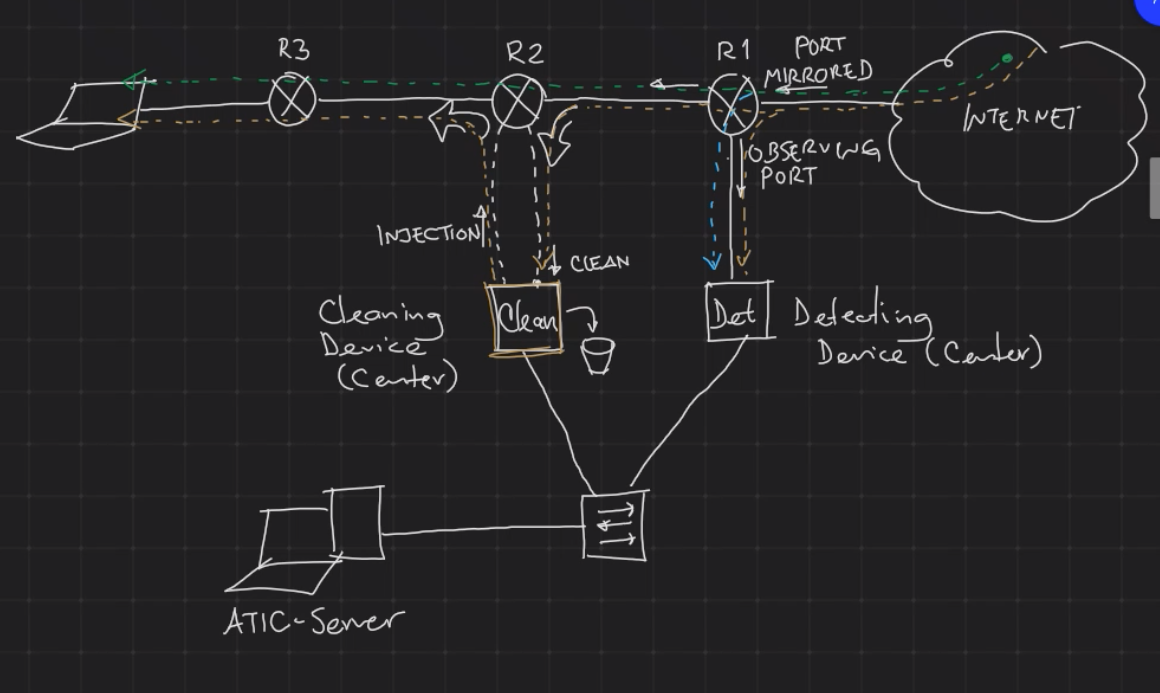 R3
R2
R1
PORT
MIRRORED
INTERNET
OBSERVING
PORT
INJECTION
CLEAN
Cleaning
Device
(Center)
Clean
Det
Detecting
Device (Center)
ATIC-Server